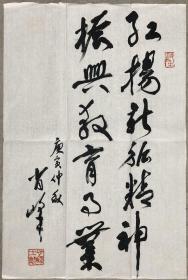 弘揚精神
振興教育事業
庚寅仲秋
肖峰